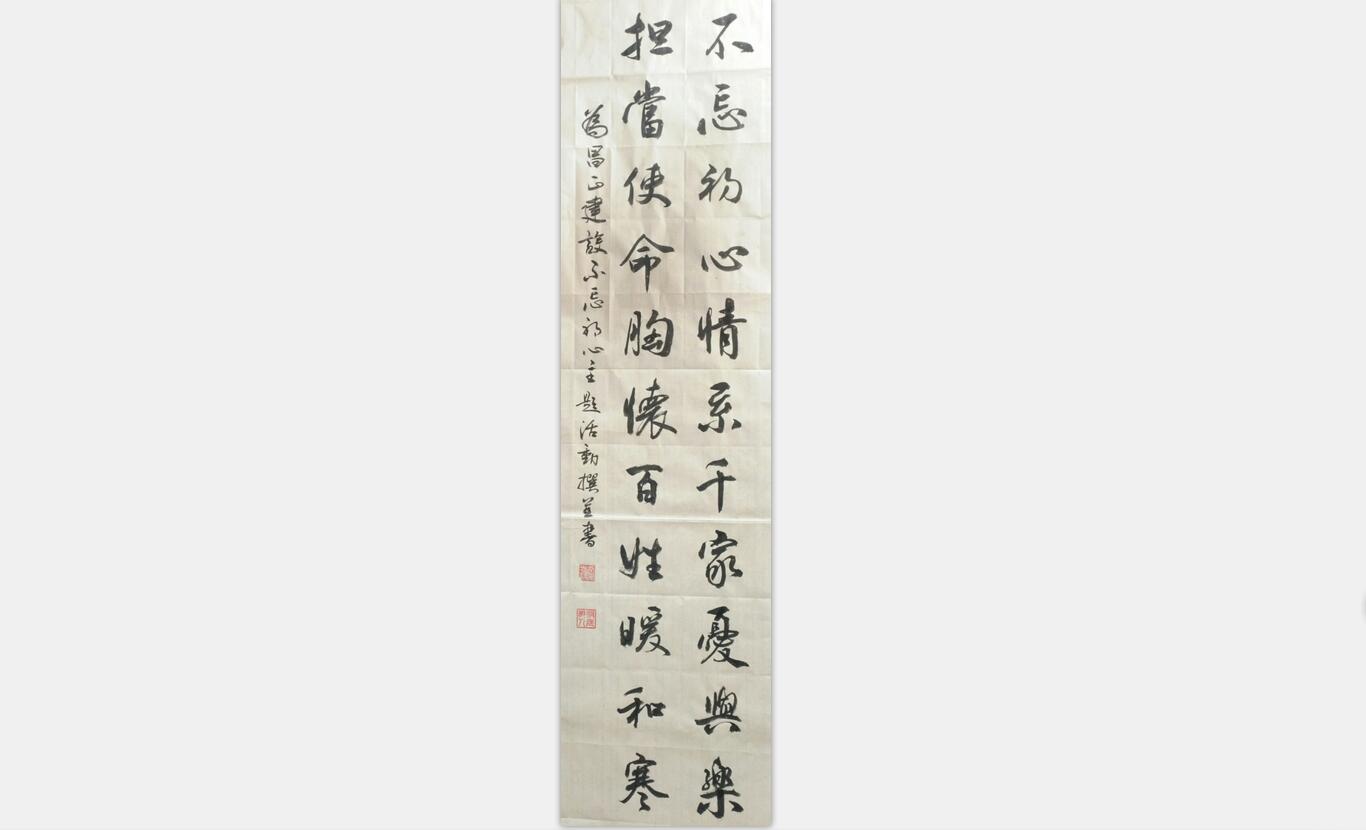 不忘初心情系千家憂與樂
担當使命胸懷百姓暖和寒
為昌正建設不忘初心主題活動撰並書